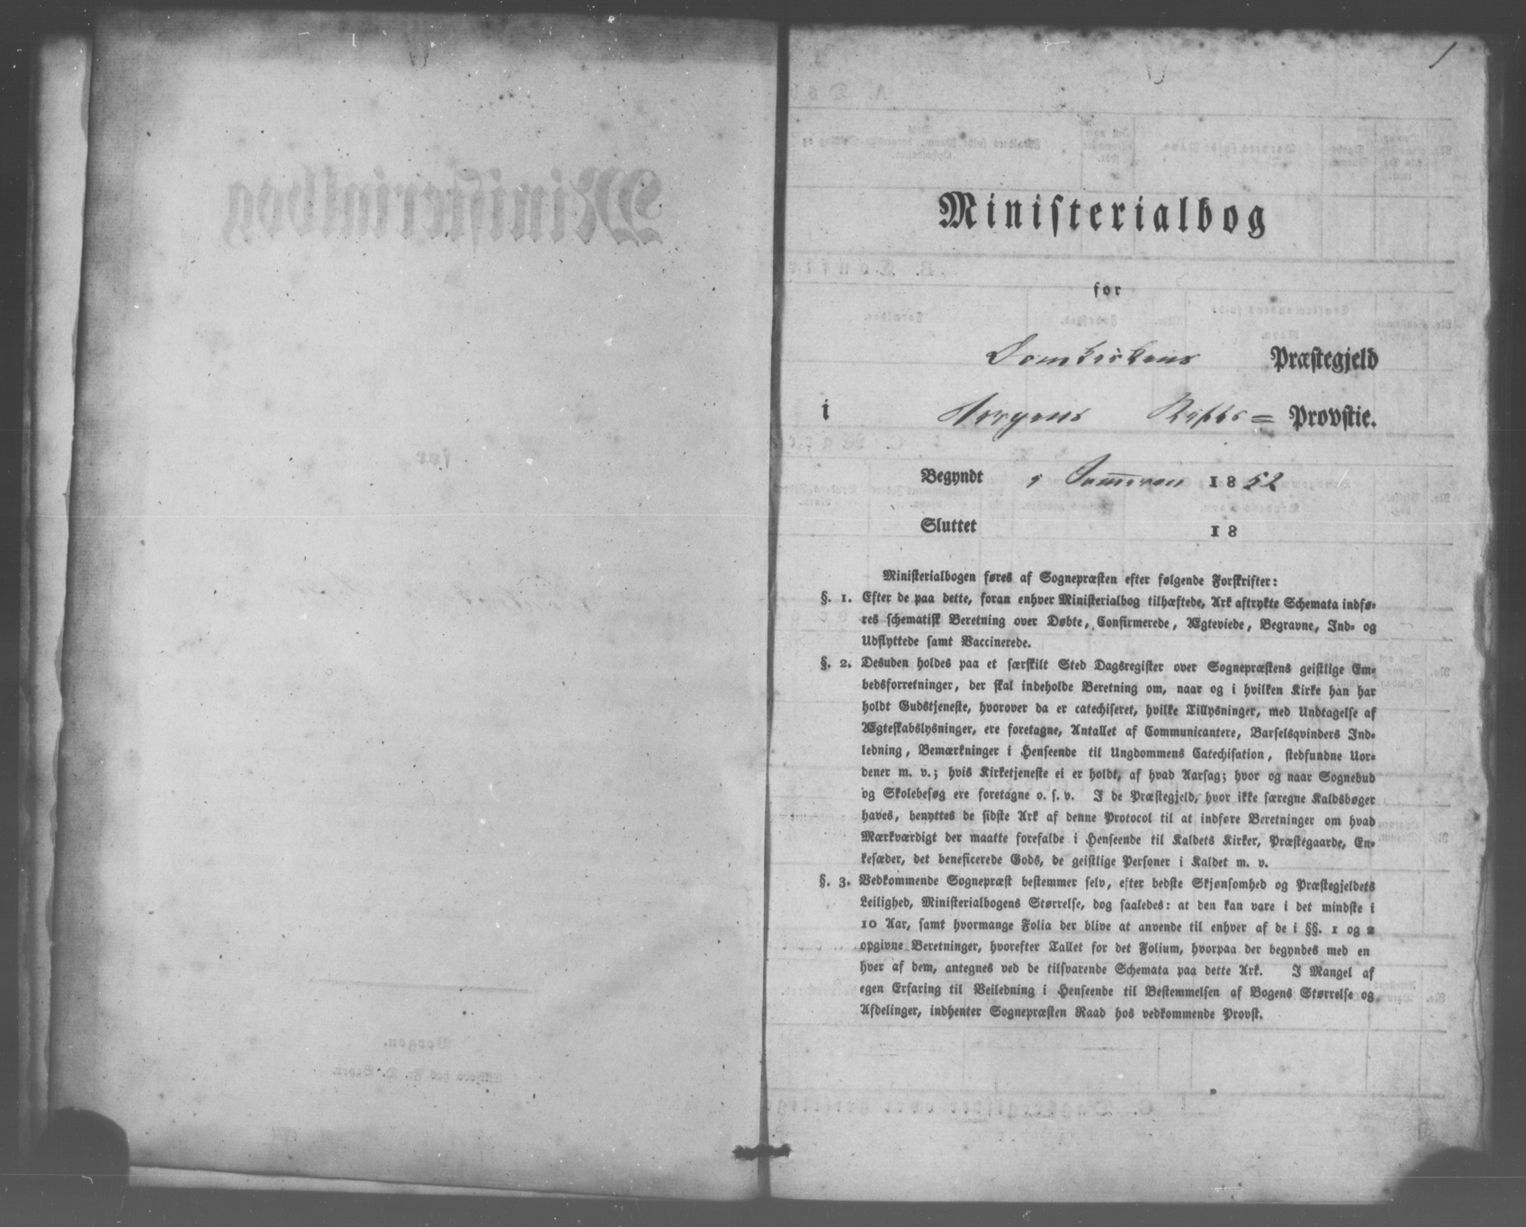 1
Ministerialbog
for
Domkirkens Præstegjeld
i Bergens Stifts= Provstie.
Begyndt 1852
Sluttet 18
Ministerialbogen føres af Sognepræsten efter følgende Forskrifter:
§. 1. Efter de paa dette, foran enhver Ministerialbog tilhæftede, Ark aftrykte Schemata indfø-
res schematisk Beretning over Døbte, Confirmerede, Ægteviede, Begravne, Ind- og
Udflyttede samt Vaccinerede.
§. 2. Desuden holdes paa et særskilt Sted Dagsregister over Sognepræstens geistlige Em-
bedsforretninger, der skal indeholde Beretning om, naar og i hvilken Kirke han har
holdt Gudstjeneste, hvorover da er catechiseret, hvilke Tillysninger, med Undtagelse af
Ægteskabslysninger, ere foretagne, Antallet af Communicantere, Barselsqvinders Ind-
ledning, Bemærkninger i Henseende til Ungdommens Catechisation, stedfundne Uor-
dener m. v.; hvis Kirketjeneste ei er holdt, af hvad Aarsag; hvor og naar Sognebud
og Skolebesøg ere foretagne o. s. v. I de Præstegjeld, hvor ikke særegne Kaldsbøger
haves, benyttes de sidste Ark af denne Protocol til at indføre Beretninger om hvad
Mærkværdigt der maatte forefalde i Henseende til Kaldets Kirker, Præstegaarde, En-
kesæder, det beneficerede Gods, de geistlige Personer i Kaldet m. v.
§. 3. Vedkommende Sognepræst bestemmer selv, efter bedste Skjønsomhed og Præstegjeldets
Leilighed, Ministerialbogens Størrelse, dog saaledes: at den kan vare i det mindste i
10 Aar, samt hvormange Folia der blive at anvende til enhver af de i §§. 1 og 2
opgivne Beretninger, hvorefter Tallet for det Folium, hvorpaa der begyndes med en
hver af dem, antegnes ved de tilsvarende Schemata paa dette Ark. I Mangel af
egen Erfaring til Veiledning i Henseende til Bestemmelsen af Bogens Størrelse og
Afdelinger, indhenter Sognepræsten Raad hos vedkommende Provst.